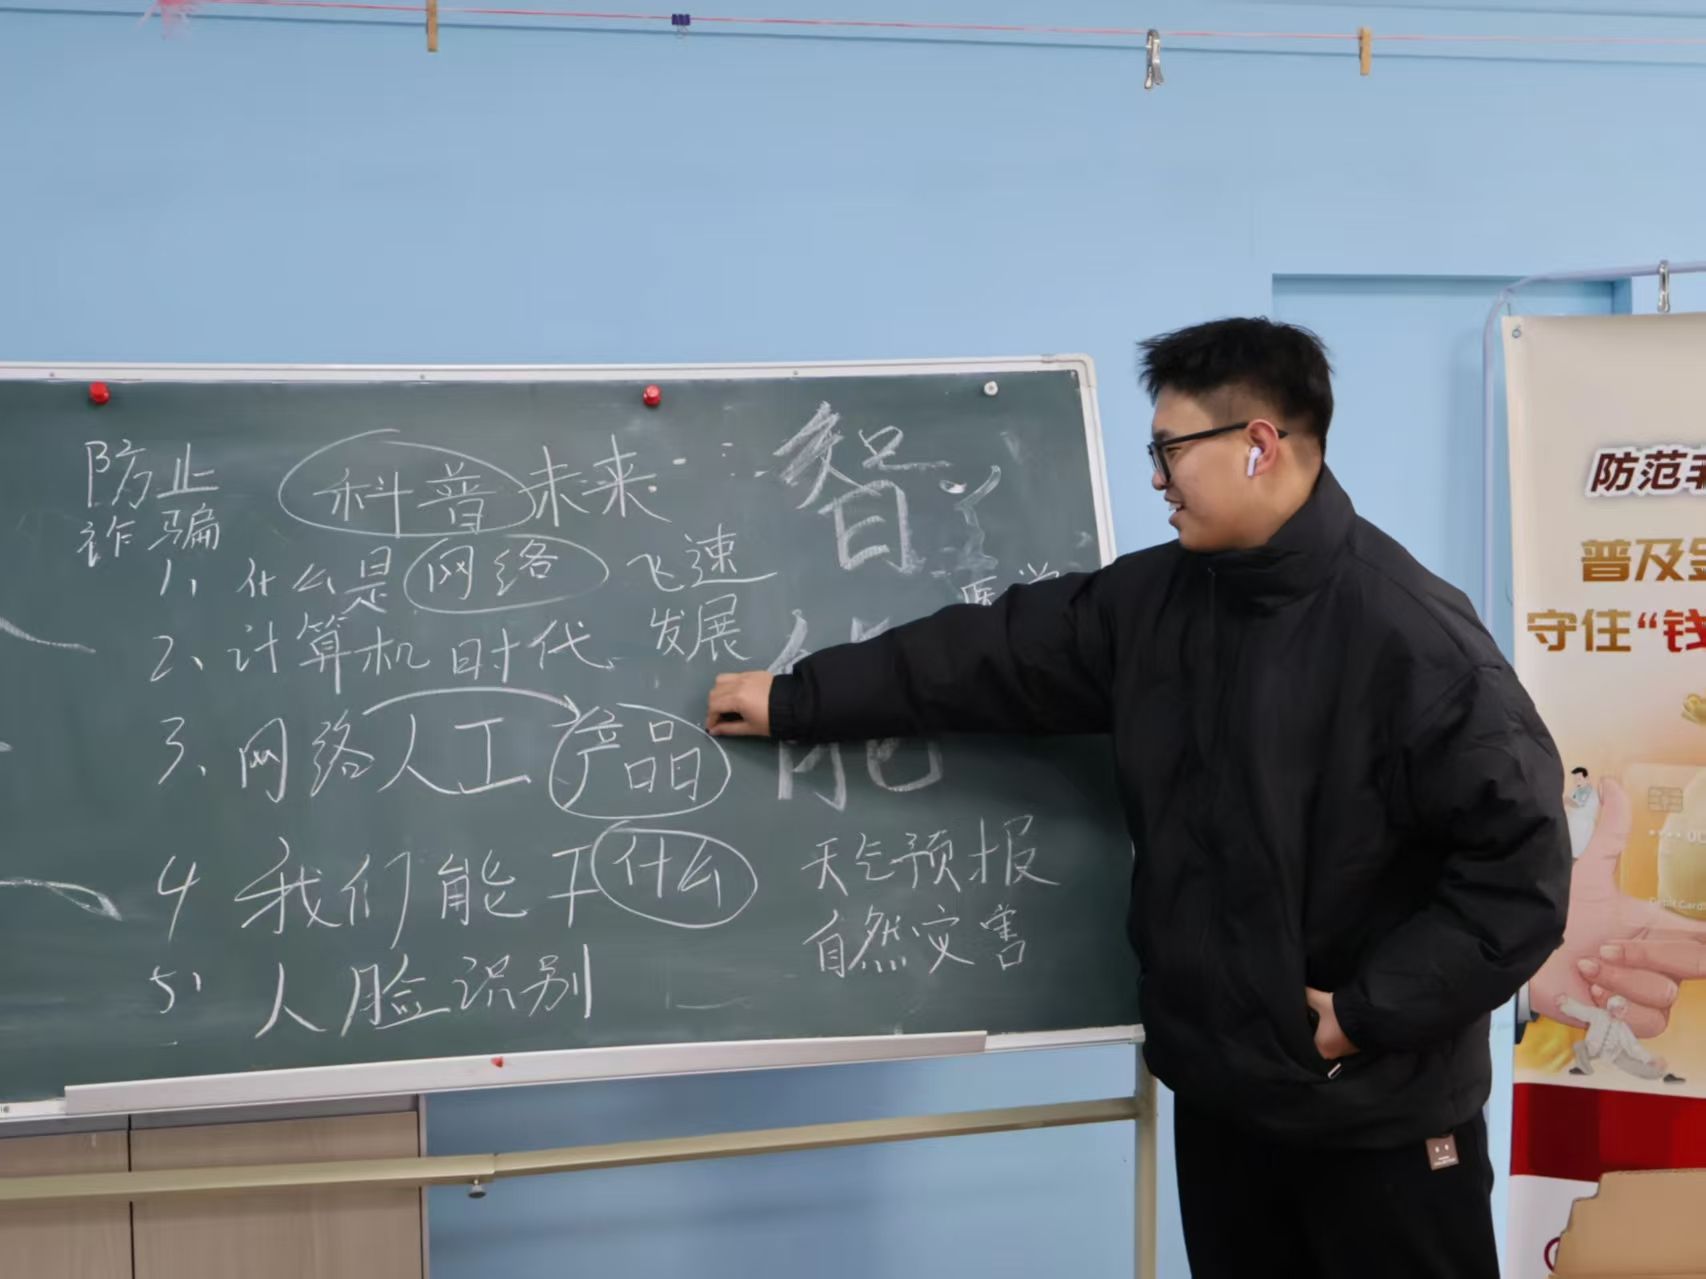 防止
诈骗
科普未来
1、什么是网络
2、计算机时代
飞速
发展
3、网络人工产品
4 我们能干什么
5、人脸识别
智
能
医学
天气预报
自然灾害
防范
普及
守住“钱